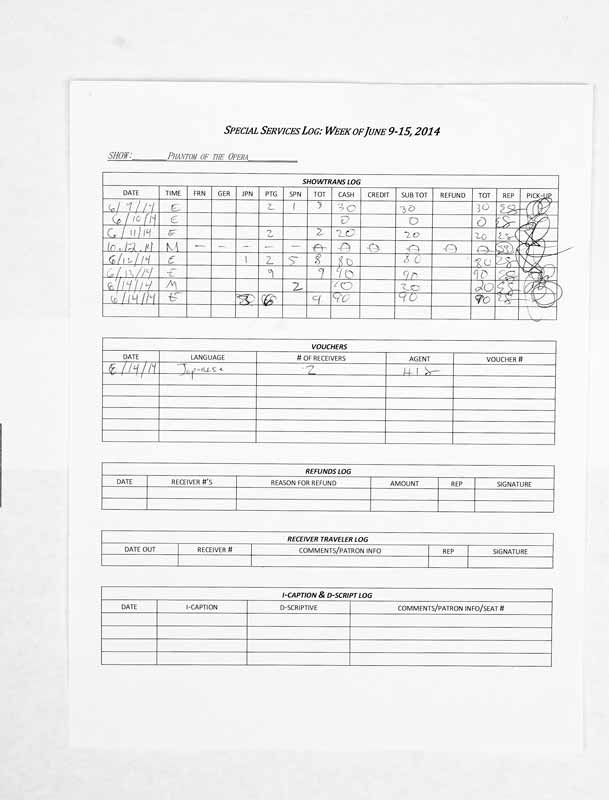 SPECIAL SERVICES LOG: WEEK OF JUNE 9-15, 2014
SHOW: PHANTOM OF THE OPERA
SHOWTRANS LOG
DATE TIME FRN GER JPN PTG SPN TOT CASH CREDIT SUB TOT REFUND TOT REP PICK-UP
6/9/14 E 2 1 3 30 30 30
6/10/14 E 0 0 0
6/11/14 E 2 2 20 20 20
10.12.14 M - - - - -
6/12/14 E 1 2 5 8 80 80 80
6/13/14 E 9 9 90 90 90
6/14/14 M 2 20
6/14/14 E 3 6 9 90 90 90
VOUCHERS
DATE LANGUAGE # OF RECEIVERS AGENT VOUCHER #
6/14/14 Japanese 2 HIS
REFUNDS LOG
DATE RECEIVER #'S REASON FOR REFUND AMOUNT REP SIGNATURE
RECEIVER TRAVELER LOG
DATE OUT RECEIVER # COMMENTS/PATRON INFO REP SIGNATURE
I-CAPTION & D-SCRIPT LOG
DATE I-CAPTION D-SCRIPTIVE COMMENTS/PATRON INFO/SEAT #